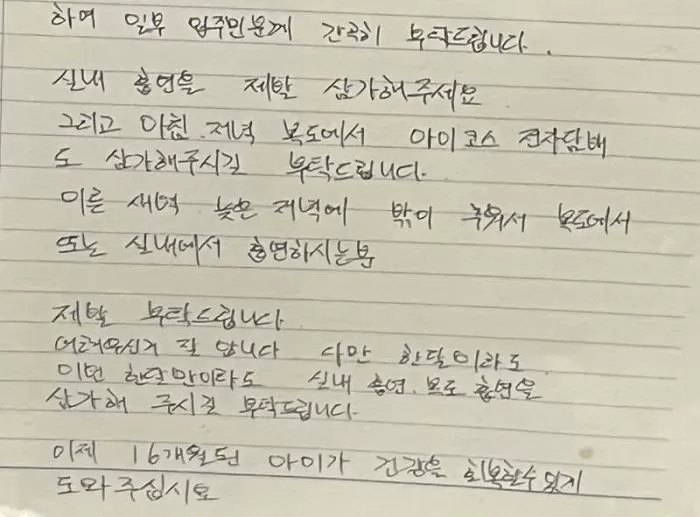 하여 일부 입주민분께 간곡히 부탁드립니다.
실내 흡연을 제발 삼가해주세요
그리고 아침.저녁 복도에서 아이코스 전자담배
도 삼가해주시길 부탁드립니다.
이른 새벽 늦은 저녁에 밖이 추워서 복도에서
또는 실내에서 흡연하시는분
제발 부탁드립니다
어려우신거 잘 압니다 다만 한달이라도
이번 한달만이라도 실내 흡연.복도 흡연을
삼가해 주시길 부탁드립니다.
이제 16개월된 아이가 건강을 회복할수 있게
도와주십시요